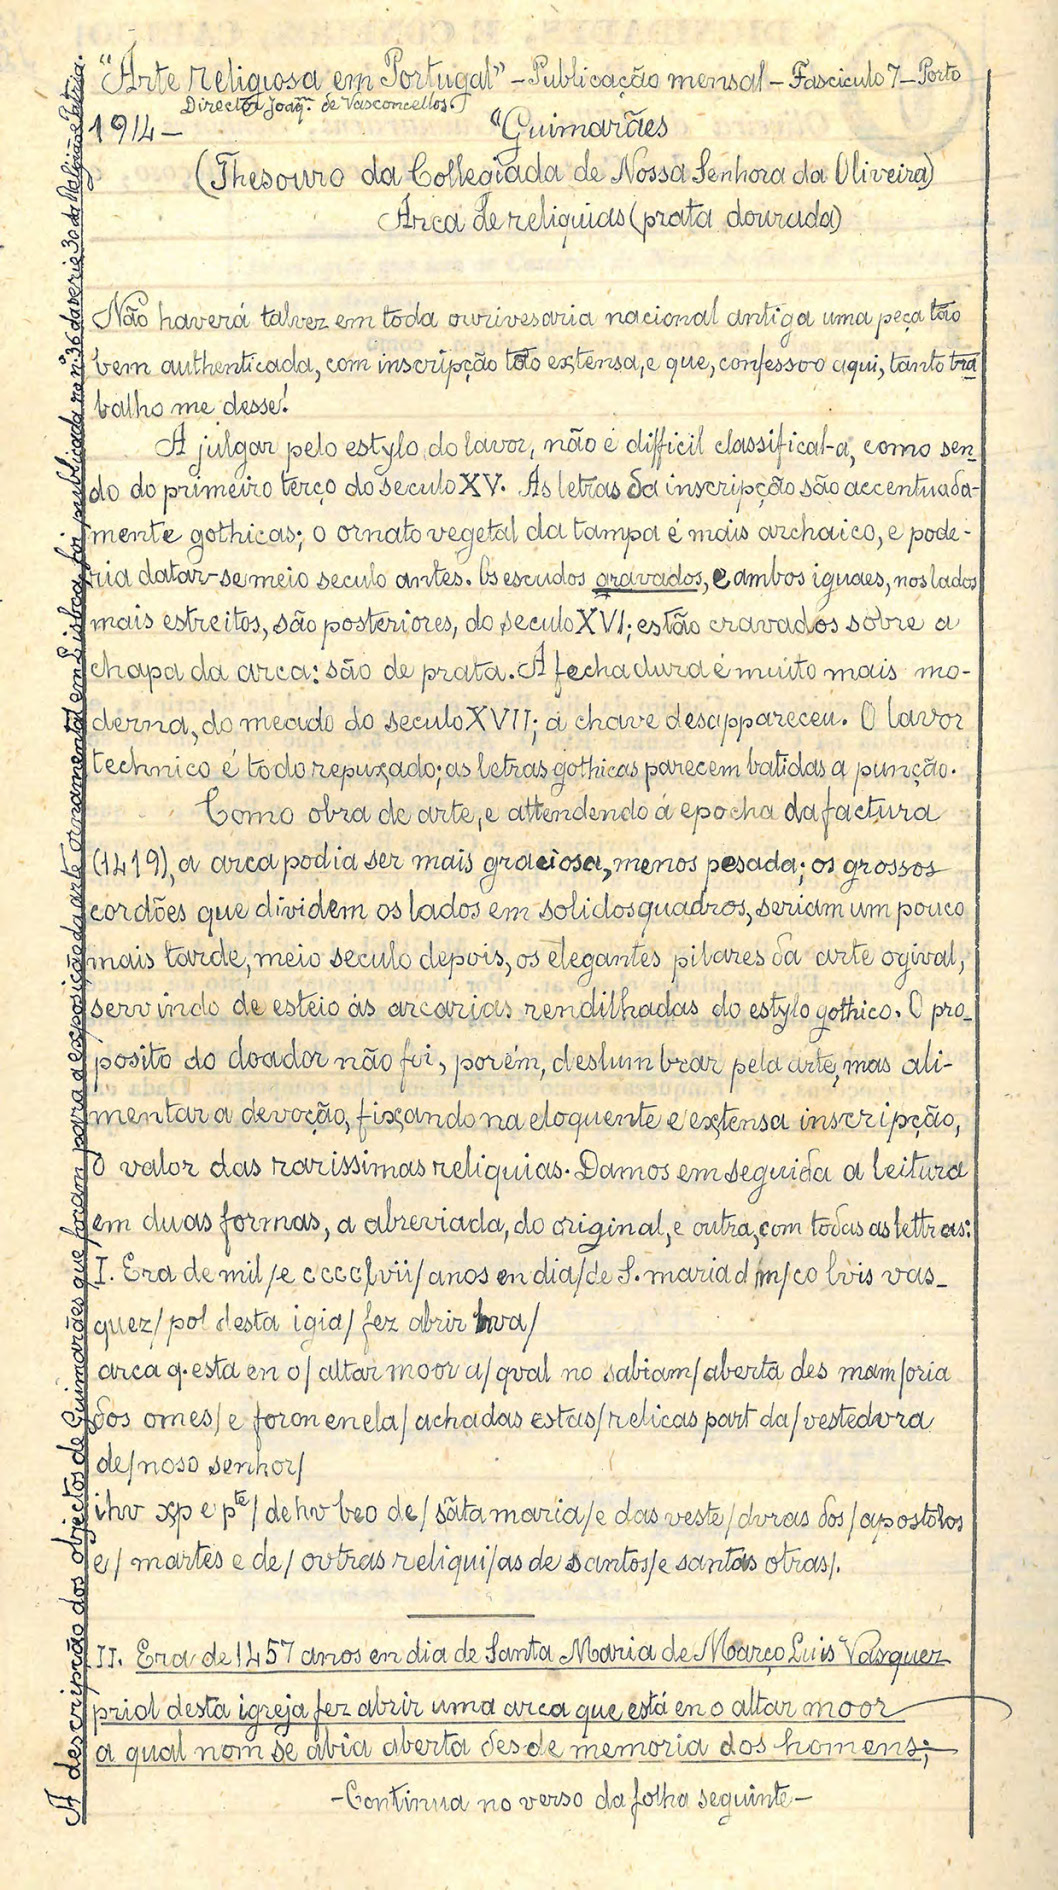 "Arte religiosa em Portugal" – Publicação mensal – Fasciculo 7 – Porto
Director Joaq.m de Vasconcellos.
1914 – "Guimarães
(Thesouro da Collegiada de Nossa Senhora da Oliveira)
Arca de reliquias (prata dourada)
Não haverá talvez em toda ourivesaria nacional antiga uma peça tão
bem authenticada, com inscripção tão extensa, e que, confesso-o aqui, tanto tra
balho me desse!
A julgar pelo estylo do lavor, não é difficil classifical-a, como sen-
do do primeiro terço do seculo XV. As letras da inscripção são accentuada-
mente gothicas; o ornato vegetal da tampa é mais archaico, e pode-
ria datar-se meio seculo antes. Os escudos gravados, e ambos iguaes, nos lados
mais estreitos, são posteriores, do seculo XVI; estão cravados sobre a
chapa da arca: são de prata. A fechadura é muito mais mo-
derna, do meado do seculo XVII; a chave desappareceu. O lavor
technico é todo repuxado; as letras gothicas parecem batidas a punção.
Como obra de arte, e attendendo á epocha da factura
(1419), a arca podia ser mais graciosa, menos pesada; os grossos
cordões que dividem os lados em solidos quadros, seriam um pouco
mais tarde, meio seculo depois, os elegantes pilares da arte ogival,
servindo de esteio ás arcarias rendilhadas do estylo gothico. O pro-
posito do doador não foi, porém, deslumbrar pela arte, mas ali-
mentar a devoção, fixando na eloquente e extensa inscripção,
o valor das rarissimas reliquias. Damos em seguida a leitura
em duas formas, a abreviada, do original, e outra, com todas as lettras:
I. Era de mil/e cccclvii/anos en dia/de S. maria d m/co lvis vas-
quez/pol desta igia/fez abrir hva/
arca q. esta en o/altar moor a/qval no sabiam/aberta des mam/oria
dos omes/e foron en ela/achadas estas/relicas part da/vestedvra
de/noso senhor/
ihv xp e pte/de hv beo de/sãta maria/e das veste/dvras dos/apostolos
e/martes e de/ovtras reliqui/as de santos/e santas otras/.
II. Era de 1457 anos en dia de Santa Maria de Março Luis Vasquez
priol desta igreja fez abrir uma arca que está en o altar moor
a qual nom se abia aberta desde memoria dos homens;
– Continua no verso da folha seguinte –
A descripção dos objectos de Guimarães que foram para a exposição da arte ornamental em Lisboa foi publicada no n.º 36 da serie 30 da Religião e Patria.